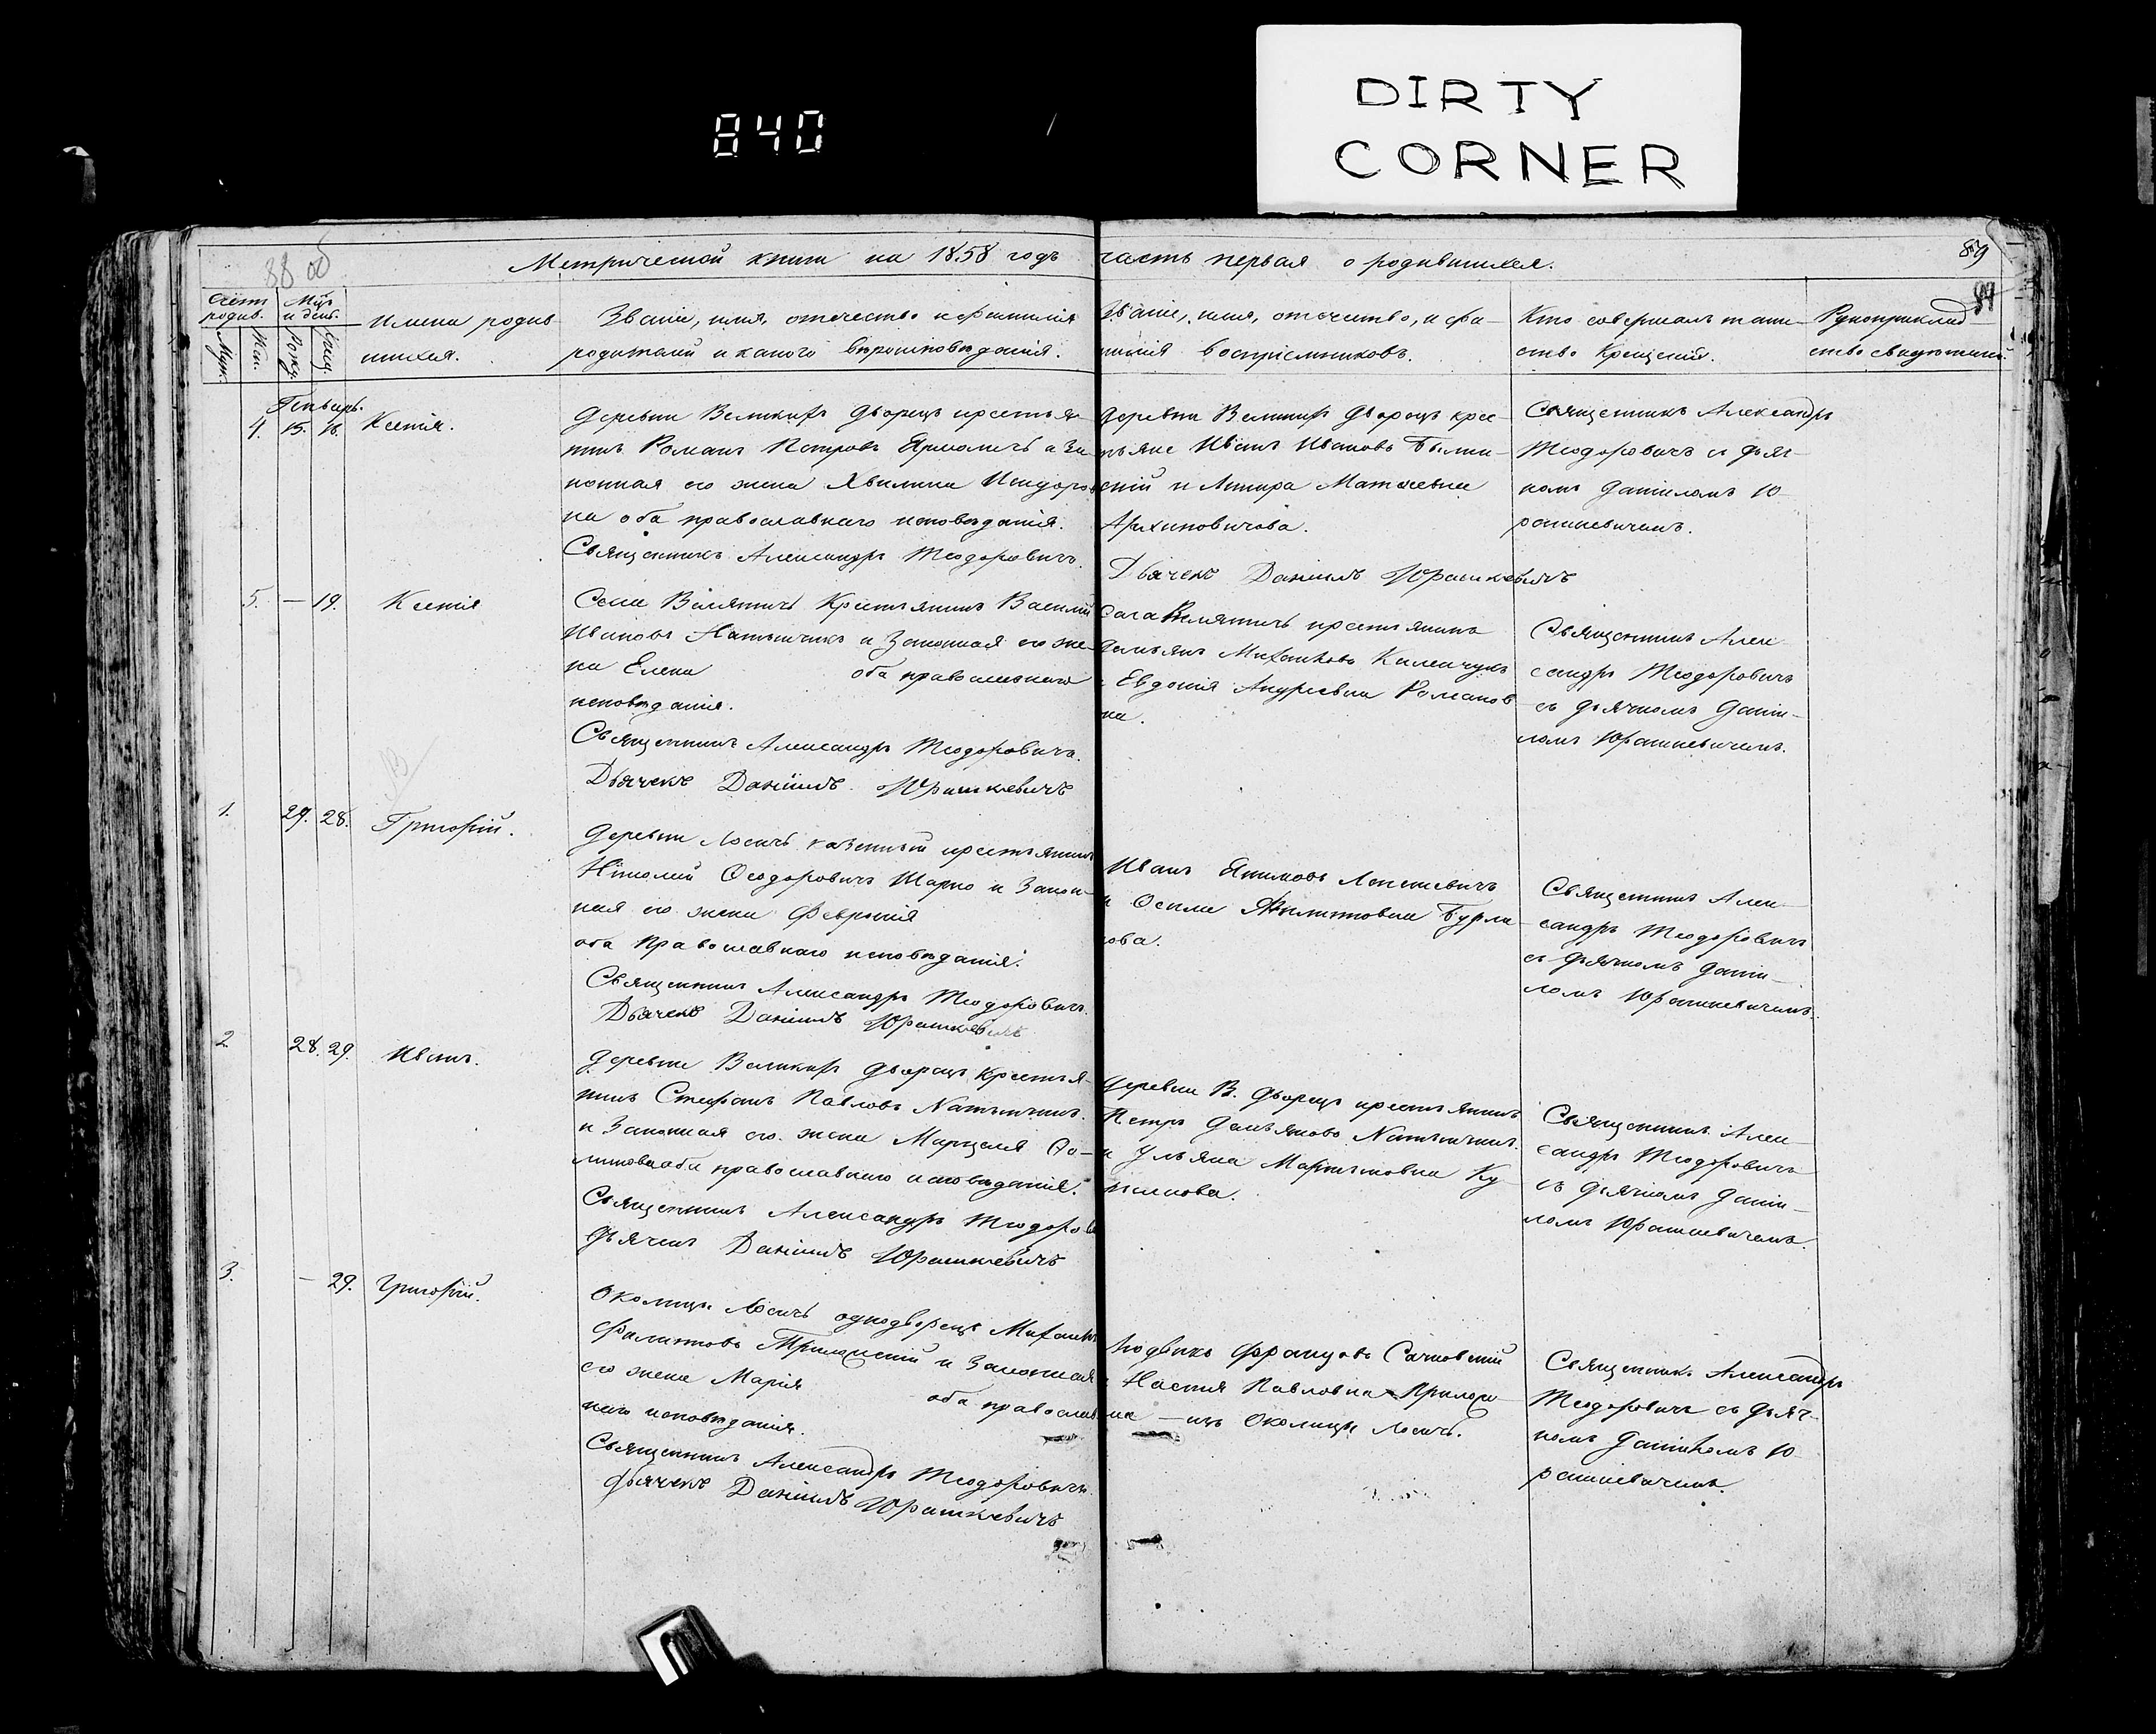 DIRTY
CORNER
840
88 об
89
Метрической книги на 1858 годъ часть первая о родившихся.
Счетъ родив.
Муж.
Жен.
Мѣц. и день.
Рожд.
Крещ.
Имена родив-
шихся.
Званіе, имя, отечество и фамилія
родителей и какого вѣроисповѣданія.
Званіе, имя, отечество, и фа-
милія воспріемниковъ.
Кто совершалъ таин-
ство Крещенія.
Рукоприклад-
ство свидѣтелей
Генварь.
4. 15. 16. Ксенія.
Деревни Великихъ Дворецъ крестья-
нинъ Романъ Петровъ Ярмоличъ и за-
конная его жена
на оба православнаго исповѣданія.
Священникъ Александръ Теодоровичъ.
Деревни Великихъ Дворецъ крес-
тьяне Иванъ Ивановъ
и Матвеевна
Священникъ Александръ
Теодоровичъ съ дьяч-
комъ Даніиломъ Ю-
рашкевичемъ.
Дьячекъ Даніилъ Юрашкевичъ
5. — 19. Ксенія
Села Крестьянинъ Василій
Ивановъ и Законная его же-
на Елена оба православнаго
исповѣданія.
Священникъ Александръ Теодоровичъ.
Дьячекъ Даніилъ Юрашкевичъ
Села крестьянинъ
Демьянъ Михайловъ
Евдокія Андреевна Романов
на.
Священникъ Алек-
сандръ Теодоровичъ
съ дьячкомъ Дании-
ломъ Юрашкевичемъ.
1. 29. 28. Григорій.
Деревни Лосичъ казенный крестьянинъ
Николай Ѳеодоровичъ и Закон-
ная его жена Февронія
оба Православнаго исповѣданія.
Священникъ Александръ Теодоровичъ.
Дьячекъ Даніилъ Юрашкевичъ
Иванъ Якимовъ
и
Священникъ Алек-
сандръ Теодоровичъ
съ дьячкомъ Дании-
ломъ Юрашкевичемъ.
2 28. 29. Иванъ.
Деревни Великихъ Дворецъ Крестья-
нинъ Стефанъ Павловъ
и Законная его жена Марцеля
оба православнаго исповѣданія.
Священникъ Александръ Теодоров
Дьячекъ Даніилъ Юрашкевичъ
Деревни В. Дворецъ крестьянинъ
Петръ Демьяновъ
и Ульяна Мартиновна
Священникъ Алек-
сандръ Теодоровичъ
съ дьячкомъ Дании-
ломъ Юрашкевичемъ.
3. — 29. Григорій.
Околицы Лосичъ однодворецъ Михаилъ
и Законная
его жена Марія оба православ
наго исповѣданія.
Священникъ Александръ Теодоровичъ.
Дьячекъ Даніилъ Юрашкевичъ
Францовъ
Настя Павловна
изъ Околицы Лосичъ.
Священникъ Александръ
Теодоровичъ съ дьяч-
комъ Даніиломъ Ю-
рашкевичемъ.